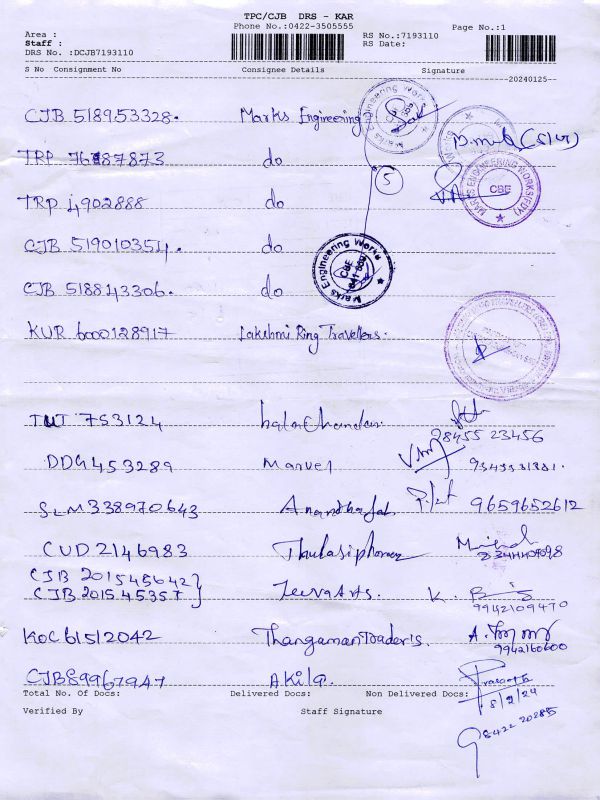 TPC/CJB DRS - KAR
Phone No.:0422-3505555
Page No.:1
Area :
Staff :
DRS No. :DCJB7193110
RS No.:7193110
RS Date:
S No Consignment No Consignee Details Signature
20240125
CJB 518953328. Marks Engineering
TRP 76187873 do
TRP 4902888 do
5
CJB 519010354. do
CJB 518843306. do
KUR 6000128917 Lakshmi Ring Travellers.
Marks Engineering Works
CBE
MARKS ENGINEERING WORKS
CBE
Marks Engineering Works
CBE
TUT 753124 balachandar
98455 23456
DDG 453289 Marvel
SLM338970643 9659652612
CUD 2146983
CJB 201545642
CJB 201545357 JeevaArts. K.
9942109470
KOC 61512042 Thangaman Trader's.
9942160600
CJB89967947 Akila.
Total No. Of Docs: Delivered Docs: Non Delivered Docs:
Verified By Staff Signature
5/2/24
98422 20285